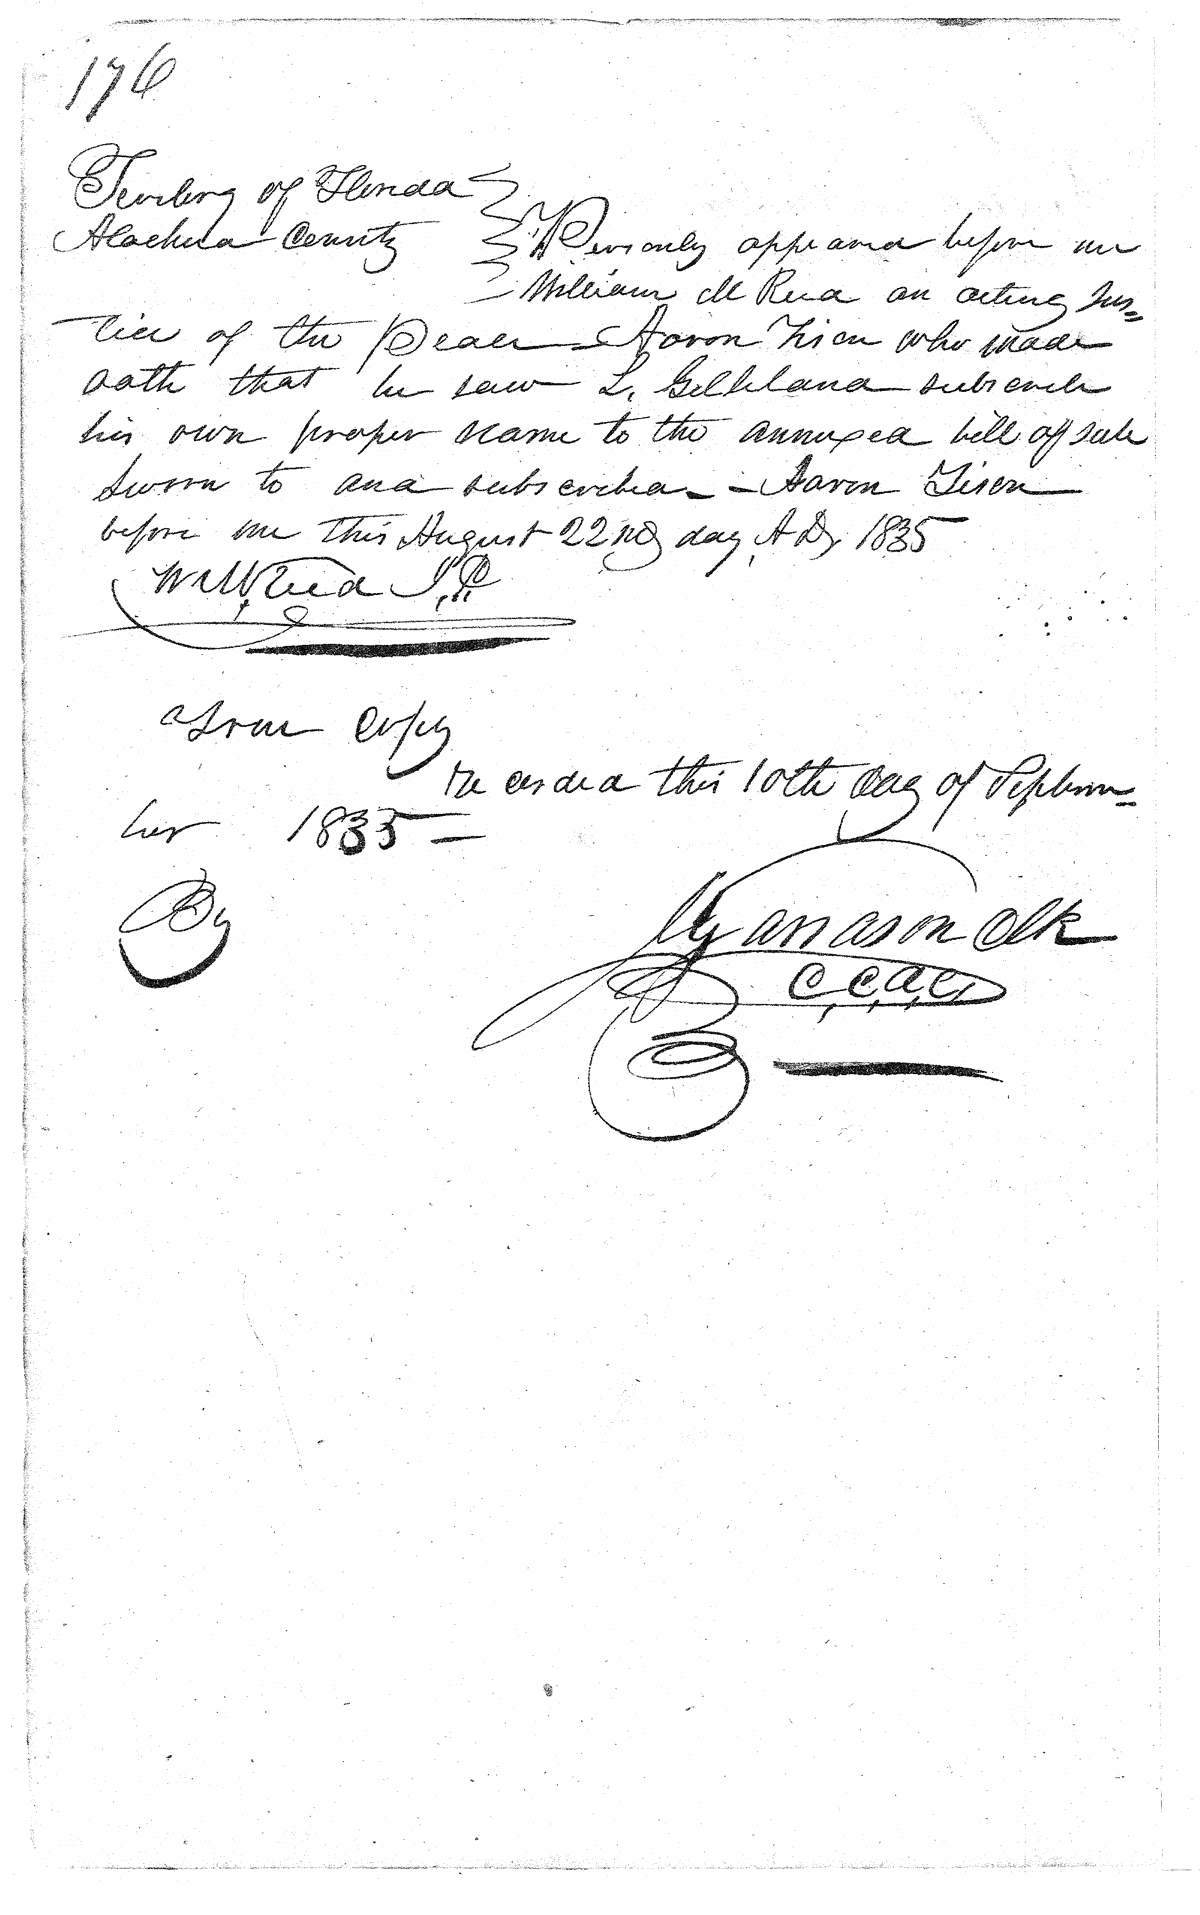 176
Territory of Florida
Alachua County } Personly appeared before me
William M Reed an acting Jus=
tice of the Peace Aaron Tison who made
oath that he saw L. Gilleland subscribe
his own proper name to the annexed bill of sale
Sworn to and subscribed Aaron Tison
before me this August 22nd day A D 1835
Wm M Reed J. P.
a True Copy
Recorded this 10th day of Septem=
ber 1835
By
Clk
C. C. A. C.